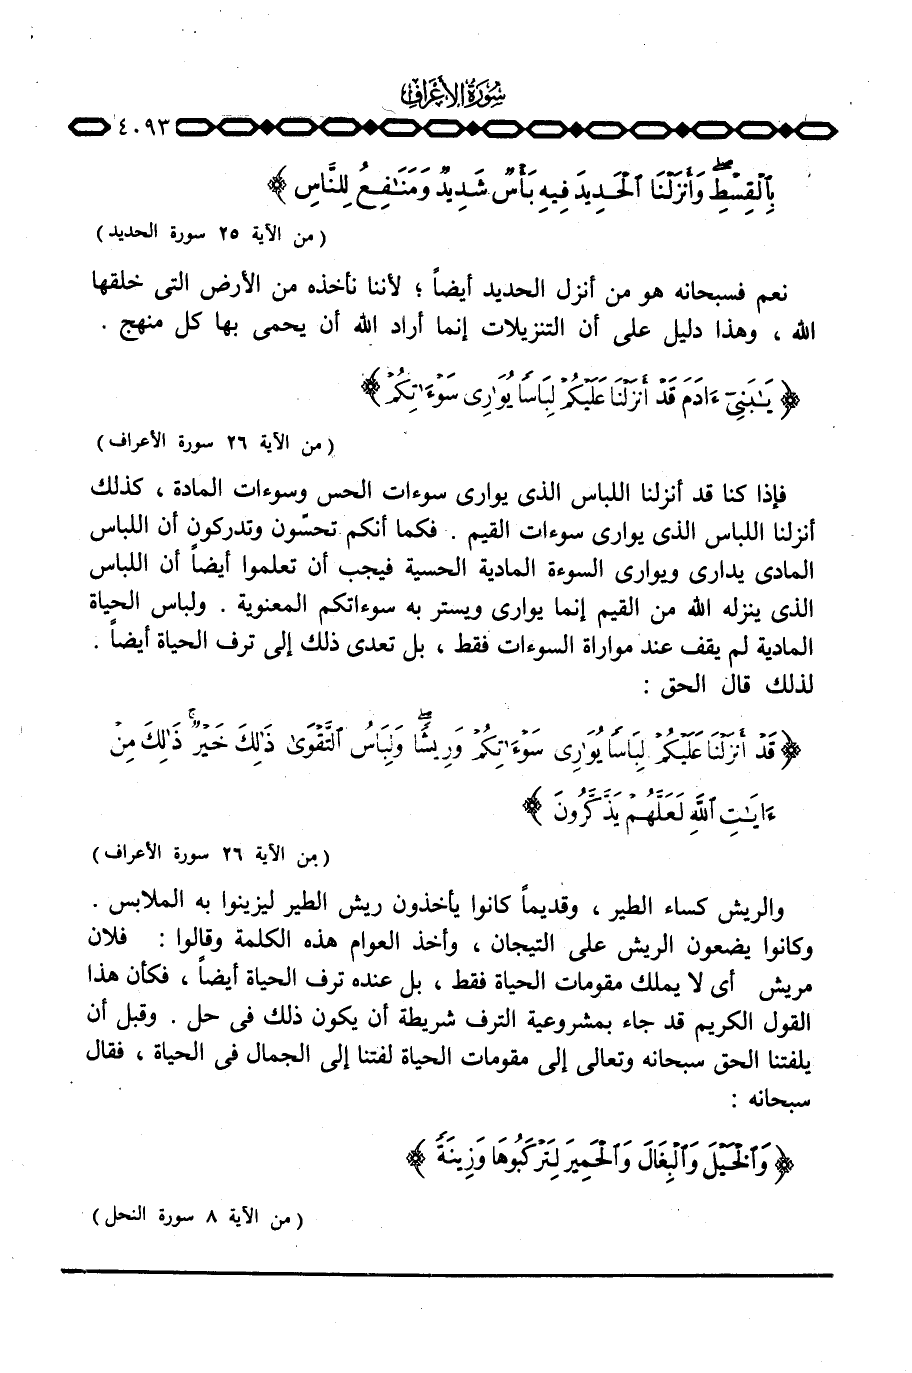 سُورَةُ الأَعْرَافِ
٤٠٩٣
بِٱلْقِسْطِ ۖ وَأَنزَلْنَا ٱلْحَدِيدَ فِيهِ بَأْسٌ شَدِيدٌ وَمَنَٰفِعُ لِلنَّاسِ ﴾
( من الآية ٢٥ سورة الحديد )
نعم فسبحانه هو من أنزل الحديد أيضاً ؛ لأننا نأخذه من الأرض التى خلقها
الله ، وهذا دليل على أن التنزيلات إنما أراد الله أن يحمى بها كل منهج .
﴿ يَٰبَنِىٓ ءَادَمَ قَدْ أَنزَلْنَا عَلَيْكُمْ لِبَاسًا يُوَٰرِى سَوْءَٰتِكُمْ ﴾
( من الآية ٢٦ سورة الأعراف )
فإذا كنا قد أنزلنا اللباس الذى يوارى سوءات الحس وسوءات المادة ، كذلك
أنزلنا اللباس الذى يوارى سوءات القيم . فكما أنكم تحسّون وتدركون أن اللباس
المادى يدارى ويوارى السوءة المادية الحسية فيجب أن تعلموا أيضاً أن اللباس
الذى ينزله الله من القيم إنما يوارى ويستر به سوءاتكم المعنوية . ولباس الحياة
المادية لم يقف عند مواراة السوءات فقط ، بل تعدى ذلك إلى ترف الحياة أيضاً .
لذلك قال الحق :
﴿ قَدْ أَنزَلْنَا عَلَيْكُمْ لِبَاسًا يُوَٰرِى سَوْءَٰتِكُمْ وَرِيشًا ۖ وَلِبَاسُ ٱلتَّقْوَىٰ ذَٰلِكَ خَيْرٌ ۚ ذَٰلِكَ مِنْ
ءَايَٰتِ ٱللَّهِ لَعَلَّهُمْ يَذَّكَّرُونَ ﴾
( من الآية ٢٦ سورة الأعراف )
والريش كساء الطير ، وقديماً كانوا يأخذون ريش الطير ليزينوا به الملابس .
وكانوا يضعون الريش على التيجان ، وأخذ العوام هذه الكلمة وقالوا : فلان
مريش أى لا يملك مقومات الحياة فقط ، بل عنده ترف الحياة أيضاً ، فكأن هذا
القول الكريم قد جاء بمشروعية الترف شريطة أن يكون ذلك فى حل . وقبل أن
يلفتنا الحق سبحانه وتعالى إلى مقومات الحياة لفتنا إلى الجمال فى الحياة ، فقال
سبحانه :
﴿ وَٱلْخَيْلَ وَٱلْبِغَالَ وَٱلْحَمِيرَ لِتَرْكَبُوهَا وَزِينَةً ﴾
( من الآية ٨ سورة النحل )